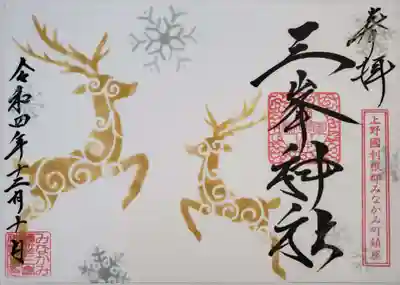 奉拝
上野國利根郡みなかみ町鎮座
三峯神社
令和四年十二月十日